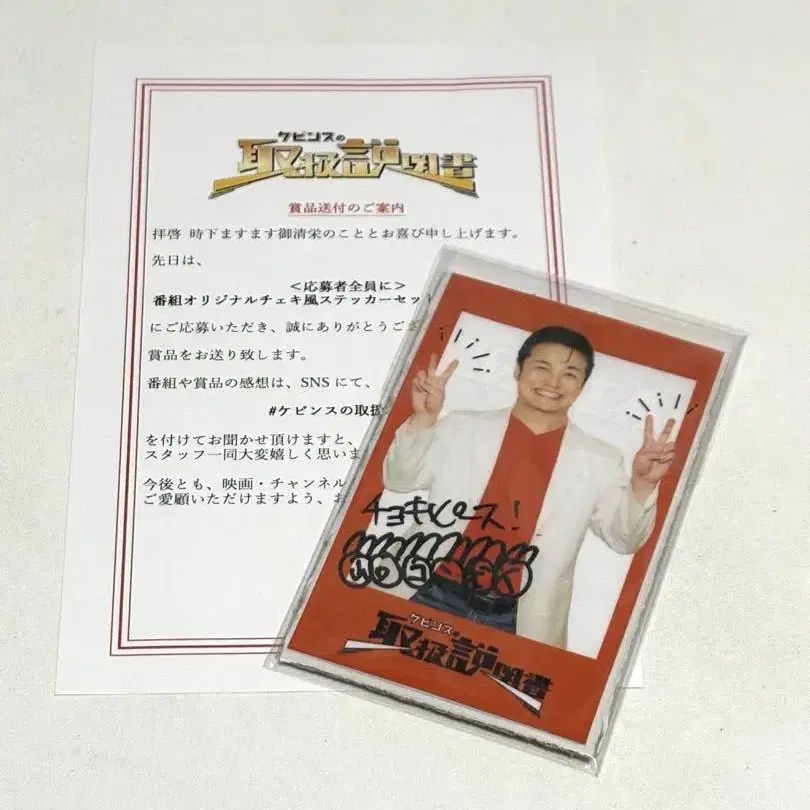 ケビンスの
取扱説明書
賞品送付のご案内
拝啓 時下ますます御清栄のこととお喜び申し上げます。
先日は、
＜応募者全員に＞
番組オリジナルチェキ風ステッカーセット
にご応募いただき、誠にありがとうござ
賞品をお送り致します。
番組や賞品の感想は、SNSにて、
#ケビンスの取扱
を付けてお聞かせ頂けますと、
スタッフ一同大変嬉しく思いま
今後とも、映画・チャンネル
ご愛顧いただけますよう、お
チョキピース!
ケビンスの
取扱説明書